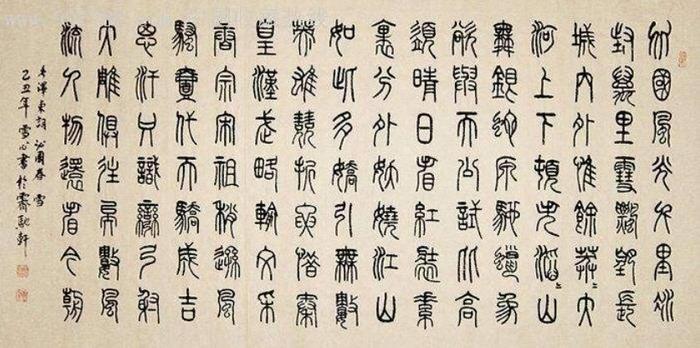 北國風光千里冰
封萬里雪飄望長
城內外惟餘莽〻大
河上下頓失滔〻山
舞銀蛇原馳蠟象
欲與天公試比高
須晴日看紅裝素
裹分外妖嬈江山
如此多嬌引無數
英雄競折腰惜秦
皇漢武略輸文采
唐宗宋祖稍遜風
騷壹代天驕成吉
思汗只識彎弓射
大雕俱往矣數風
流人物還看今朝
毛澤東詞 沁園春 雪
己丑年 雪心書於軒